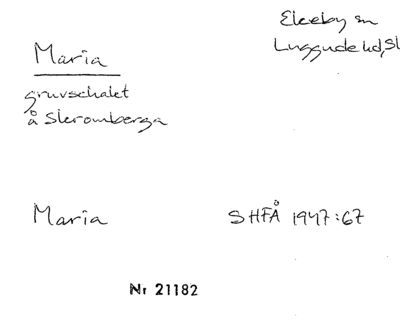 Ekeby sn
Luggude hd, Sk
Maria
gruvschakt
å Skromberga
Maria
SHFÅ 1947:67
Nr 21182